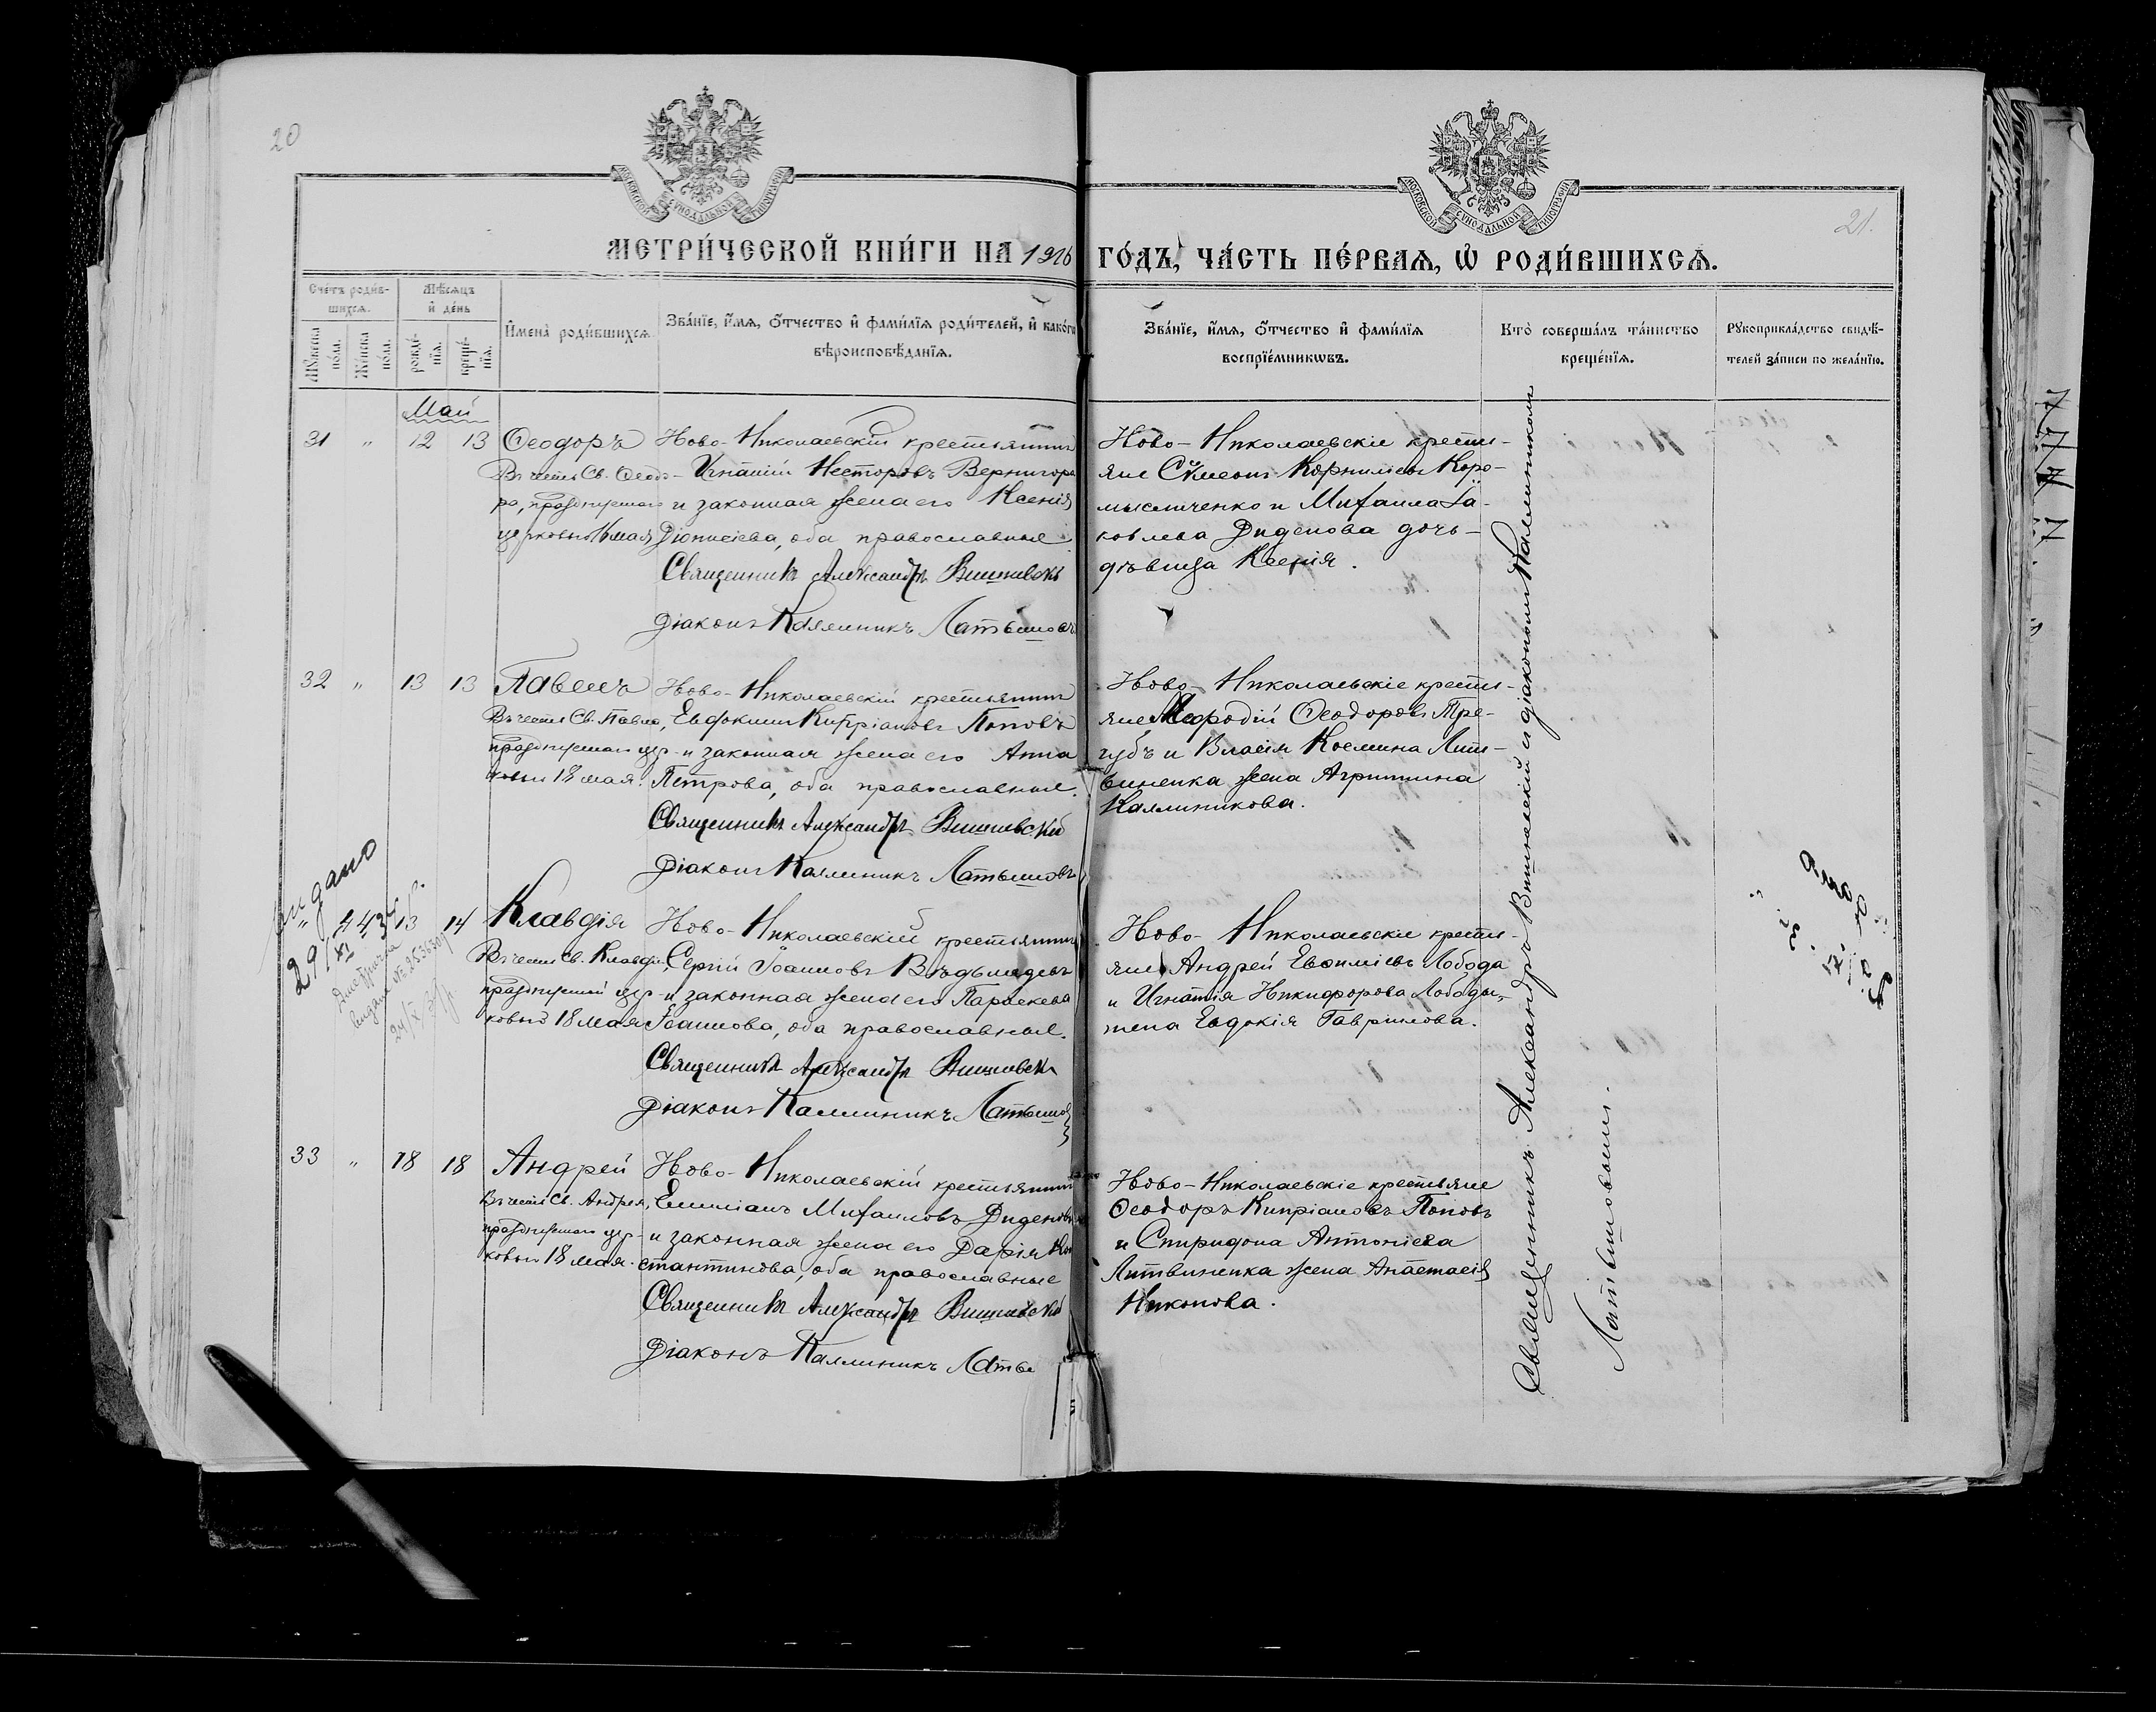 20
21.
МОСКОВСКОЙ СУНОДАЛЬНОЙ ТИПОГРАФІИ
МОСКОВСКОЙ СУНОДАЛЬНОЙ ТИПОГРАФІИ
МЕТРИ́ЧЕСКОЙ КНИ́ГИ НА 1916 ГО́ДЪ, ЧА́СТЬ ПЕ́РВАѦ, Ѡ҆ РОДИ́ВШИХСѦ.
Сче́тъ роди́в-
шихсѧ.
Мꙋ́жеска по́ла.
Же́нска по́ла.
Мѣ́сѧцъ
и҆ де́нь
рожде́-
нїѧ.
креще́-
нїѧ.
И҆мена̀ роди́вшихсѧ
Зва́нїе, и҆́мѧ, ѻ҆́тчество и҆ фами́лїѧ роди́телей, и҆ како́гѡ
вѣроисповѣ́данїѧ.
Зва́нїе, и҆́мѧ, ѻ҆́тчество и҆ фами́лїѧ
воспрїе́мникѡвъ.
Кто̀ соверша́лъ та́инство
креще́нїѧ.
Рꙋкоприкла́дство свидѣ́-
телей за́писи по жела́нїю.
Май
31 " 12 13 Ѳеодоръ
Въ честь Св. Ѳеодо-
ра, празднуемаго
церковью 16 мая
Ново-Николаевскій крестьянинъ
Игнатій Несторовъ Вернигора
и законная жена его Ксенія
Діонисіева, оба православные.
Священникъ Александръ Вишневскі
Діаконъ Каллиникъ Латышовъ
Ново-Николаевскіе крестья-
яне Сѵмеонъ Корниліевъ Коро-
мысличенко и Михаила Іа-
ковлева Диденова дочь-
дѣвица Ксенія.
32 " 13 13 Павелъ
Въ честь Св. Павла,
празднуемаго цер-
ковью 18 мая.
Ново-Николаевскій крестьянинъ
Евдокимъ Кипріановъ Поповъ
и законная жена его Анна
Петрова, оба православные.
Священникъ Александръ Вишневскій
Діаконъ Каллиникъ Латышовъ
Ново-Николаевскіе крестья-
яне Меѳодій Ѳеодоровъ Тре-
губъ и Власія Космина Лит-
виненка жена Агриппина
Каллиникова.
видано
29/XI 443
Дметрична
видана № 253630
24/X
13 14 Клавдія
Въ честь Св. Клавдіи,
празднуемой цер-
ковью 18 мая
Ново-Николаевскій крестьянинъ
Сергій Іоанновъ Вѣдьмедевъ
и законная жена его Параскева
Іоаннова, оба православные.
Священникъ Александръ Вишневскі
Діаконъ Каллиникъ Латышов
Ново-Николаевскіе крестья-
яне Андрей Евѳиміевъ Лобода
и Игнатія Никифорова Лободы,
жена Евдокія Гаврилова.
33 " 18 18 Андрей
Въ честь Св. Андрея,
празднуемаго цер-
ковью 18 мая.
Ново-Николаевскій крестьянинъ
Емиліанъ Михаиловъ Диденовъ
и законная жена его Дарія Кон
стантинова, оба православные
Священникъ Александръ Вишневскій
Діаконъ Каллиникъ Латы
Ново-Николаевскіе крестьяне
Ѳеодоръ Кипріановъ Поповъ
и Спиридона Антоніева
Литвиненка жена Анастасія
Никонова.
Священникъ Александръ Вишневскій и діакономъ Каллиникомъ
Латышовымъ.